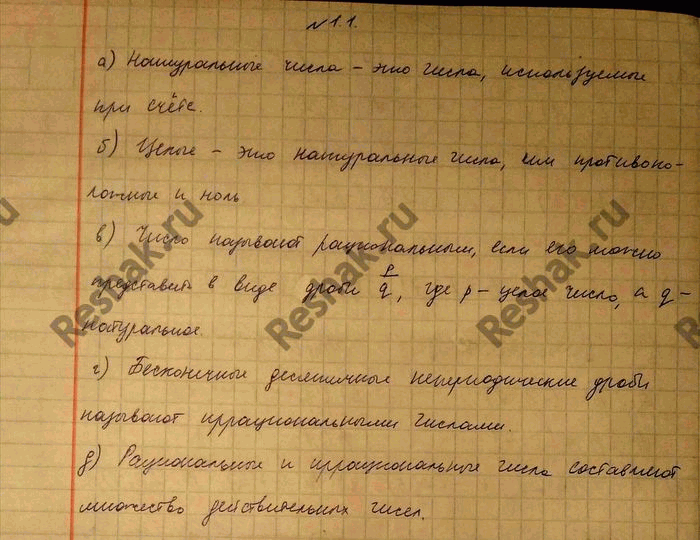 № 1.1.
а) Натуральные числа – это числа, используемые
при счёте.
б) Целые – это натуральные числа, им противопо-
ложные и ноль
в) Число называют рациональным, если его можно
представить в виде дроби p/q, где p – целое число, а q –
натуральное.
г) Бесконечные десятичные непериодические дроби
называют иррациональными числами.
д) Рациональные и иррациональные числа составляют
множество действительных чисел.
Reshak.ru
Reshak.ru
Reshak.ru